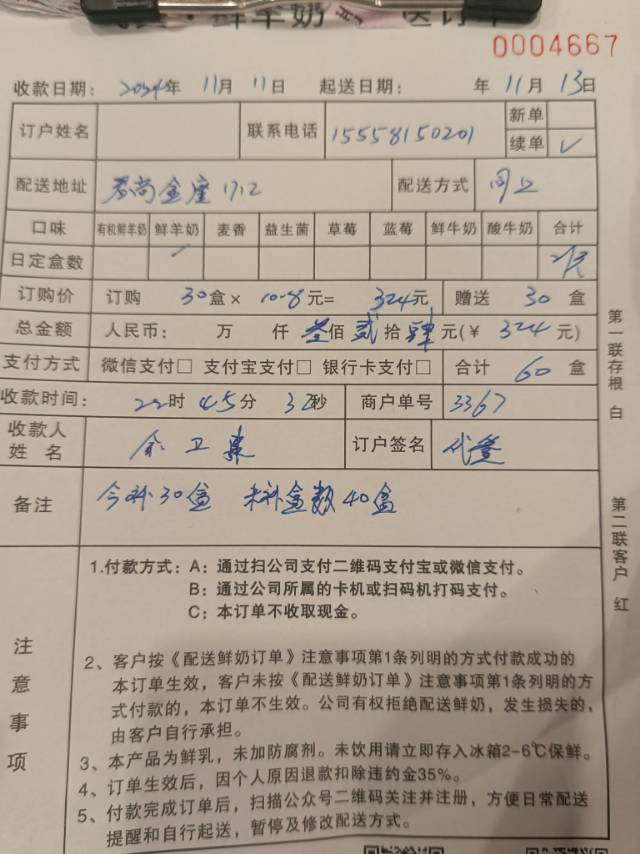 ·鲜羊奶 送订单
0004667
收款日期： 2024年 11月 11日 起送日期： 年 11月 13日
订户姓名 联系电话 15558150201 新单
续单 ✓
配送地址 春尚金座1712 配送方式 同上
口味 有机鲜羊奶 鲜羊奶 麦香 益生菌 草莓 蓝莓 鲜牛奶 酸牛奶 合计
日定盒数
订购价 订购 30盒× 10.8元= 324元 赠送 30 盒
总金额 人民币： 万 仟 叁佰 贰拾 肆元(¥ 324 元)
支付方式 微信支付□ 支付宝支付□ 银行卡支付□ 合计 60 盒
收款时间： 22时 45分 32秒 商户单号 3367
收款人姓名 余卫 订户签名 代签
备注 今补30盒 未补盒数40盒
第一联存根 白
第二联客户 红
注意事项
1.付款方式：A：通过扫公司支付二维码支付宝或微信支付。
B：通过公司所属的卡机或扫码机打码支付。
C：本订单不收取现金。
2、客户按《配送鲜奶订单》注意事项第1条列明的方式付款成功的
本订单生效，客户未按《配送鲜奶订单》注意事项第1条列明的方
式付款的，本订单不生效。公司有权拒绝配送鲜奶，发生损失的，
由客户自行承担。
3、本产品为鲜乳，未加防腐剂。未饮用请立即存入冰箱2-6℃保鲜。
4、订单生效后，因个人原因退款扣除违约金35%。
5、付款完成订单后，扫描公众号二维码关注并注册，方便日常配送
提醒和自行起送，暂停及修改配送方式。